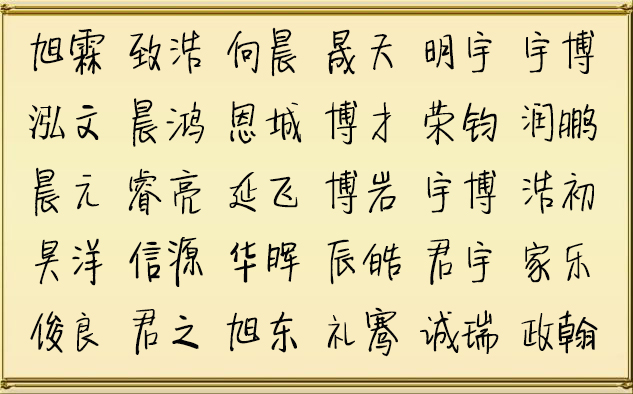 旭霖 致浩 向晨 晟天 明宇 宇博
泓文 晨鸿 恩城 博才 荣钧 润鹏
晨元 睿亮 延飞 博岩 宇博 浩初
昊洋 信源 华晖 辰皓 君宇 家乐
俊良 君之 旭东 礼骞 诚瑞 政翰